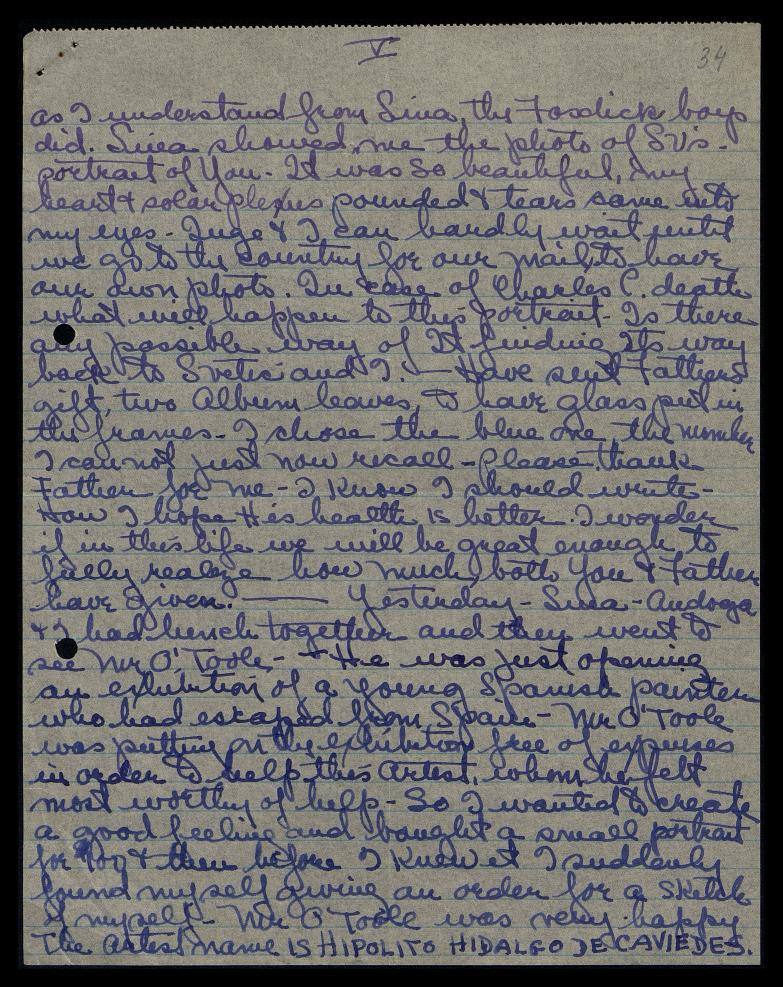 V
34
as I understand from Sina, the Fosdick boys
did. Sina showed me the photo of SV's -
portrait of You - It was so beautiful, my
heart & solar plexus pounded & tears came into
my eyes - Inge & I can hardly wait until
we go to the country for our mail, to have
our own photo. In case of Charles C. death
what will happen to this portrait - Is there
any possible way of It finding Its way
back to Svetia and I. — Have sent Fathers
gift, two Album leaves, to have glass put in
the frames - I chose the blue one, the number
I can not just now recall - Please thank
Father for me - I know I should write -
How I hope His health is better. I wonder
if in this life we will be great enough to
fully realize how much both You & Father
have given. —— Yesterday - Sina - Andoga
& I had lunch together and they went to
see Mr O'Toole, - He was just opening
an exhibition of a young Spanish painter
who had escaped from Spain - Mr O'Toole
was putting on the exhibition free of expenses
in order to help this Artist, whom he felt
most worthy of help - So I wanted to create
a good feeling and bought a small portrait
for & then before I knew it I suddenly
found myself giving an order for a sketch
of myself - Mr O'Toole was very happy
The Artist name IS HIPOLITO HIDALGO DE CAVIEDES.